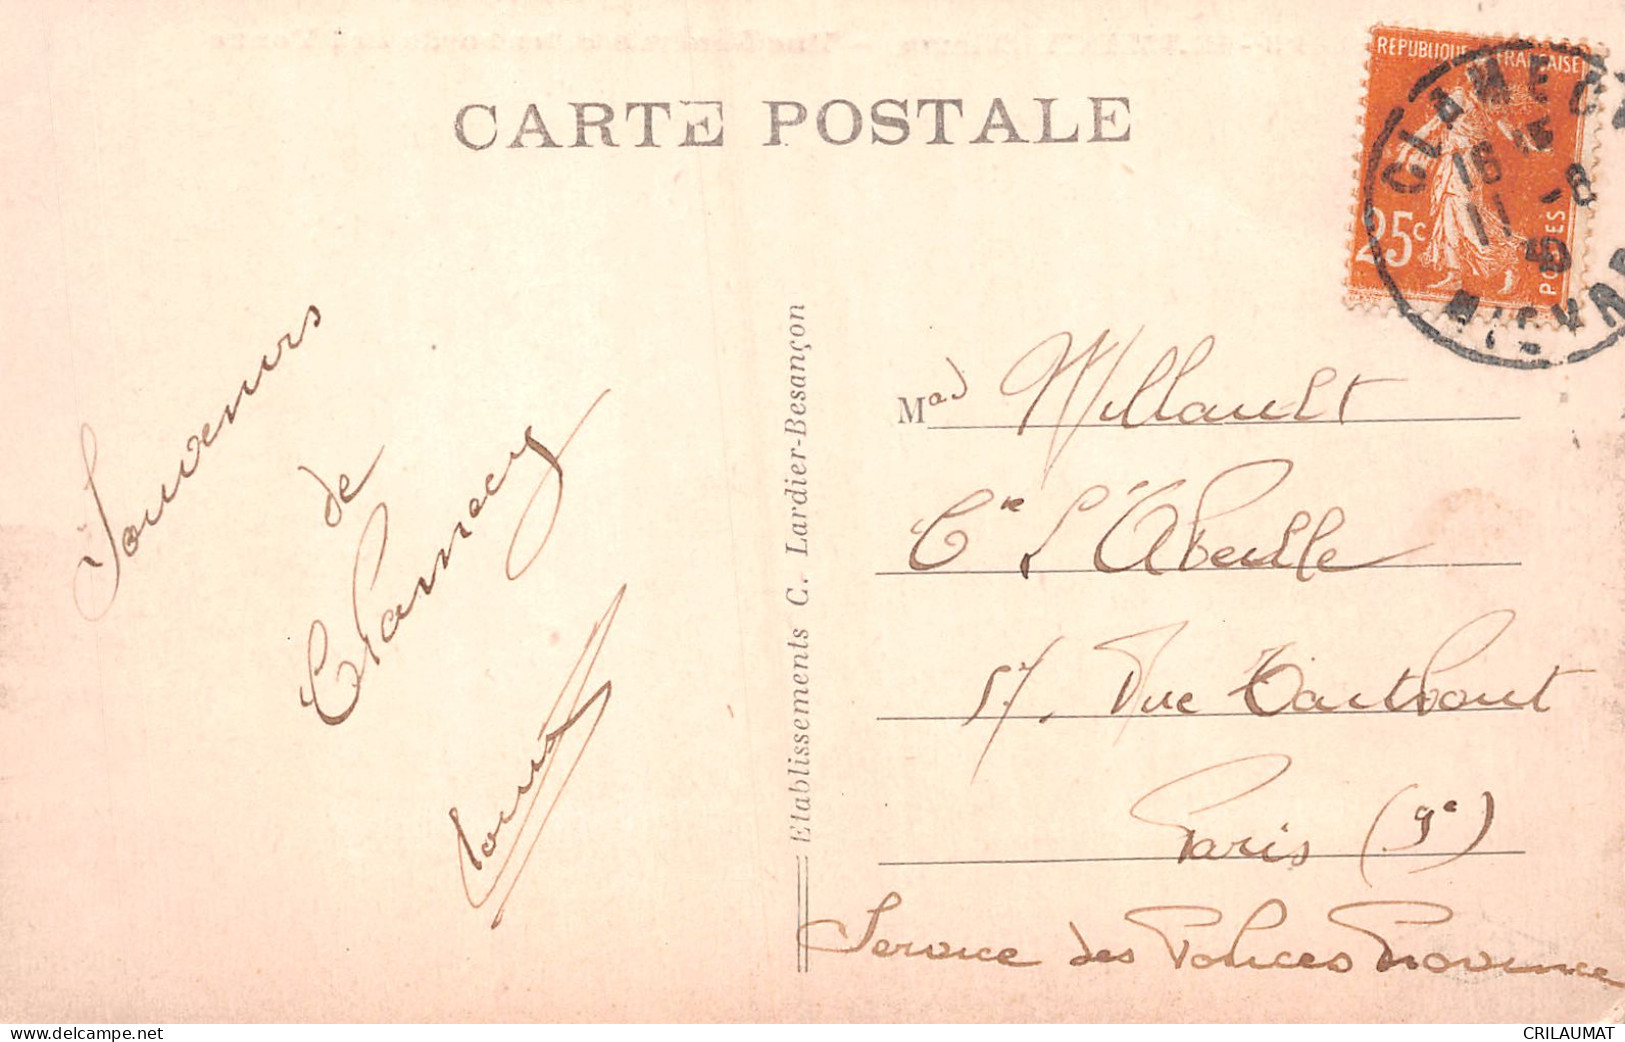 CARTE POSTALE
REPUBLIQUE FRANÇAISE
25c
POSTES
CLAMECY
16 15
11 -8
30
NIEVRE
Souvenirs
de
Clamecy
Etablissements C. Lardier-Besançon
Mad Millault
Cie L'Abeille
57, Rue Taitbout
Paris (9e)
Service des Polices Province
www.delcampe.net
CRILAUMAT